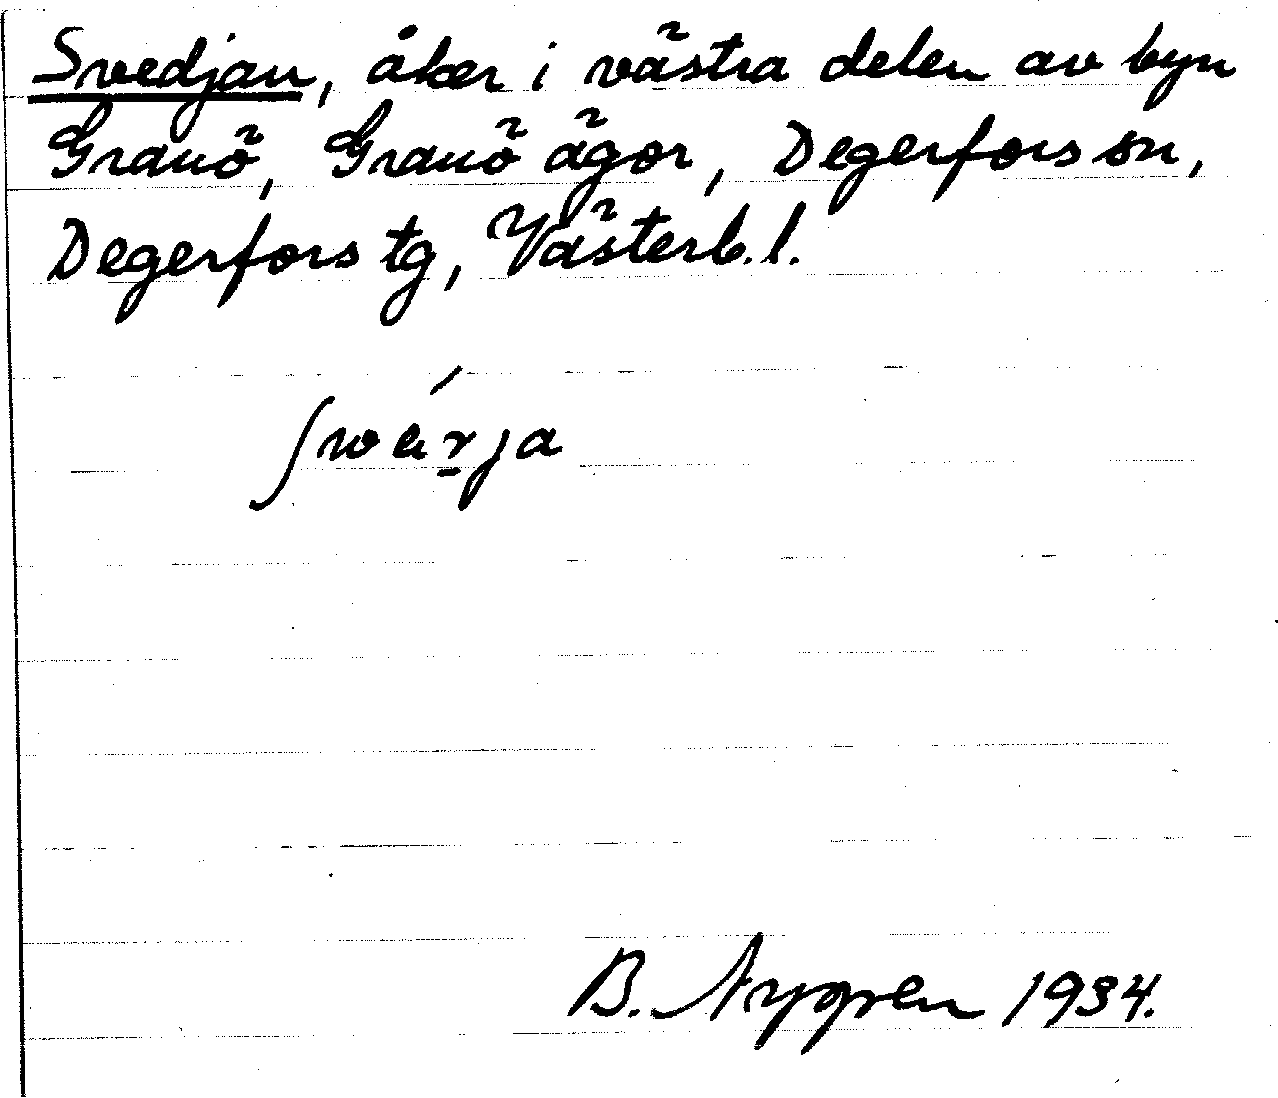 Svedjan, åker i västra delen av byn
Granö, Granö ägor, Degerfors sn,
Degerfors tg, Västerb. l.
B. Nygren 1934.